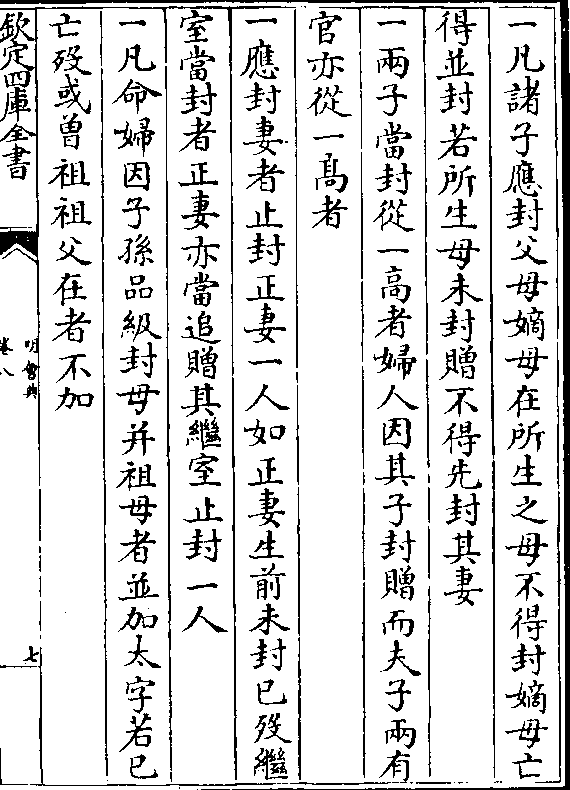 一凡諸子應封父母嫡母在所生之母不得封嫡母亡
得並封若所生母未封贈不得先封其妻
一兩子當封從一高者婦人因其子封贈而夫子兩有
官亦從一高者
一應封妻者止封正妻一人如正妻生前未封已歿繼
室當封者正妻亦當追贈其繼室止封一人
一凡命婦因子孫品級封母并祖母者並加太字若已
亡歿或曽祖祖父在者不加
欽定四庫全書
明會典
卷八
七